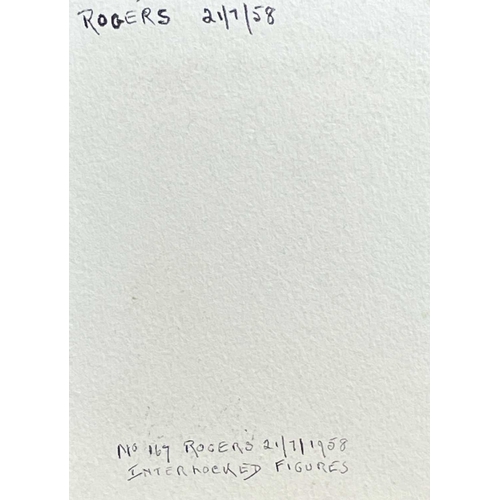 ROGERS 21/7/58
No 167 ROGERS 21/7/1958
INTERLOCKED FIGURES